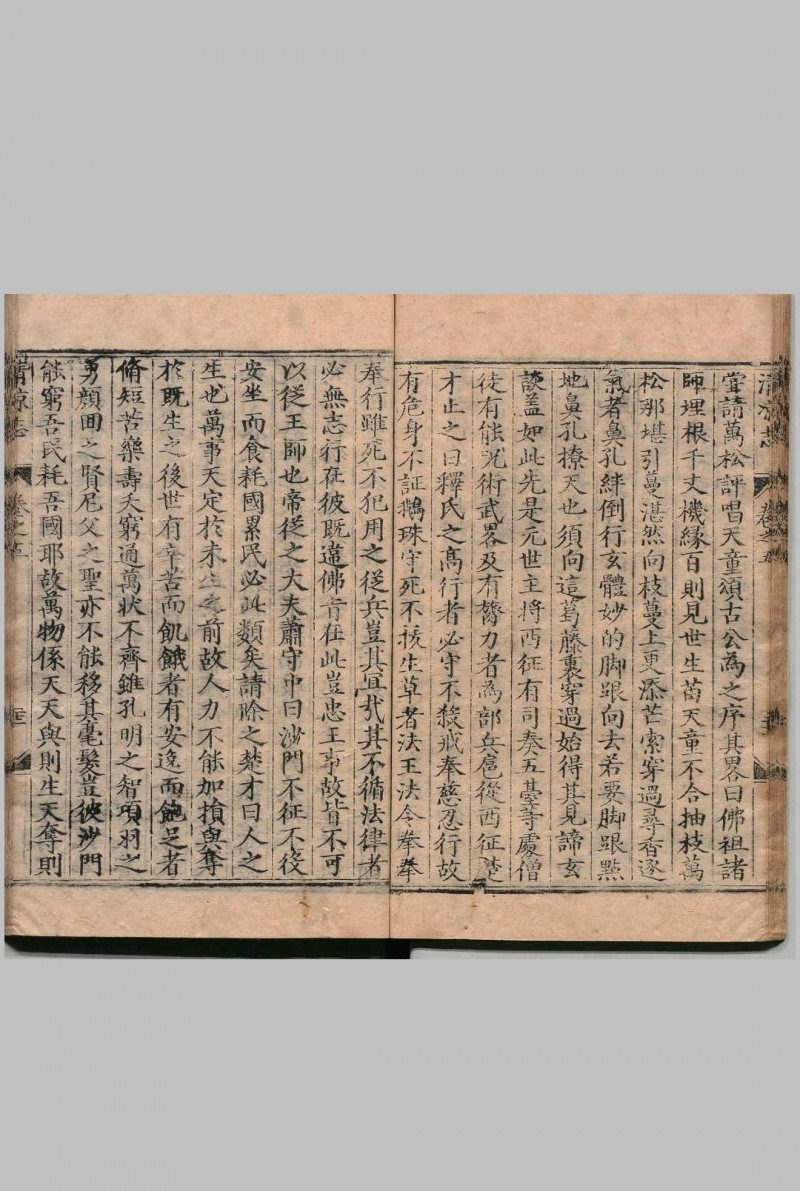 清涼志
嘗請萬松評唱天童頌古公為之序其畧曰佛祖諸
師埋根千丈機緣百則見世生苗天童不合抽枝萬
松那堪引蔓湛然向枝蔓上更添芒索穿過尋香逐
氣者鼻孔絆倒行玄體妙的脚跟向去若要脚跟㸃
地鼻孔撩天也須向這葛藤裏穿過始得其見諦玄
談盖如此先是元世主將西征有司奏五臺等處僧
徒有能呪術武畧及有膂力者為部兵扈從西征楚
才止之曰釋氏之髙行者必守不殺戒奉慈忍行故
有危身不証鵝珠守死不㧞生草者法王法令拳拳
奉行雖死不犯用之從兵豈其宜㢤其不循法律者
必無志行在彼既違佛肯在此豈忠王事故皆不可
以從王師也帝從之大夫蕭守中曰沙門不征不役
安坐而食耗國累民必此類矣請除之楚才曰人之
生也萬事天定於未生之前故人力不能加損與奪
於既生之後世有辛苦而飢餓者有安逸而飽足者
脩短苦樂壽夭窮通萬狀不齊雖孔明之智項羽之
勇顏回之賢尼父之聖亦不能移其毫髮豈彼沙門
能窮吾民耗吾國耶故萬物係天天與則生天奪則
清涼志